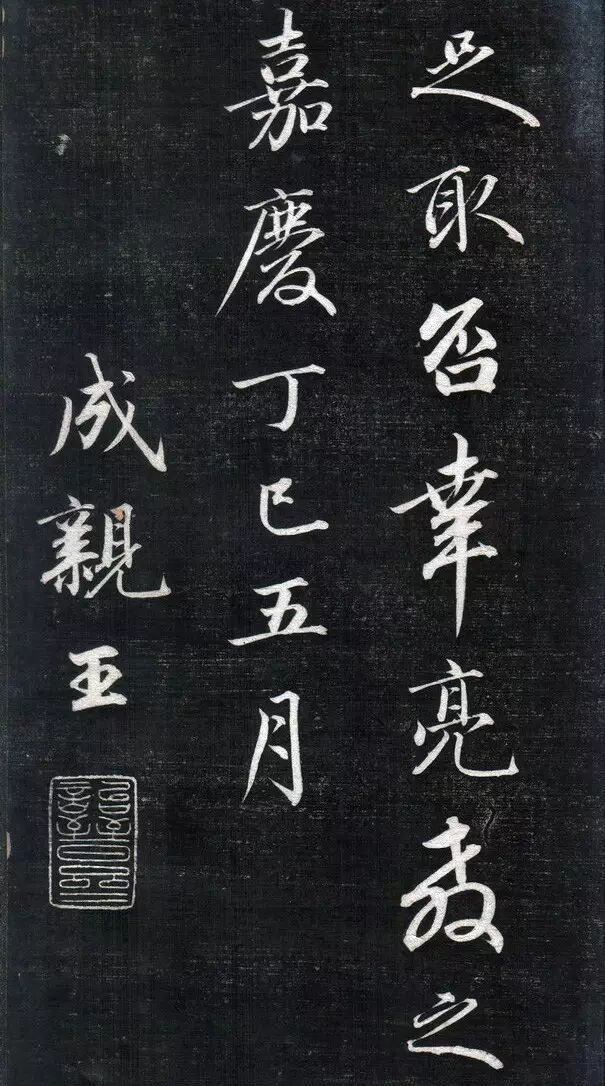 足取否幸亮教之
嘉慶丁巳五月
成親王